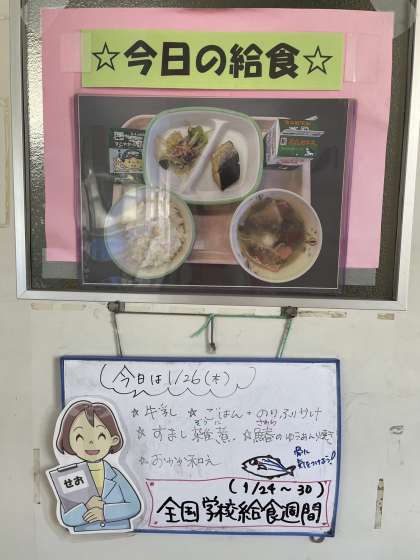 ☆今日の給食☆
今日は1/26(木)
☆牛乳 ☆ごはん+のりふりかけ
ぞうに さわら
☆すまし雑煮 ☆鰆のゆうあん焼き
☆おかか和え
骨に
気をつけよう!
せお
(1/24~30)
全国学校給食週間